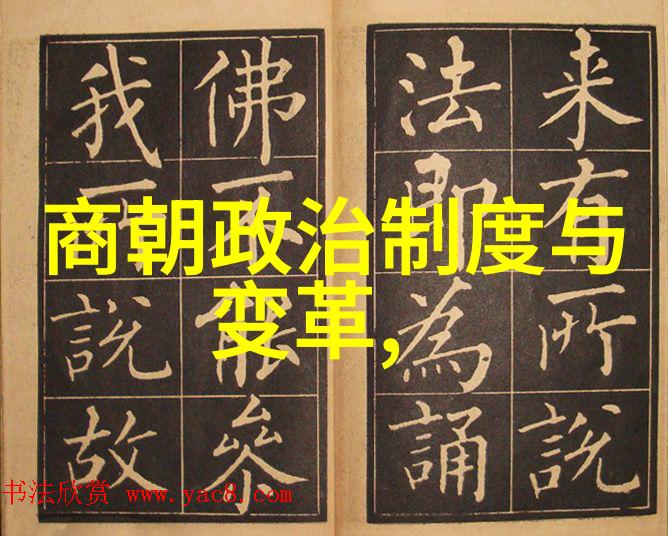 来有所說
法即為誦
佛不能參
我所說故
商朝政治制度与
变革,
书法欣赏 www.yac8.com